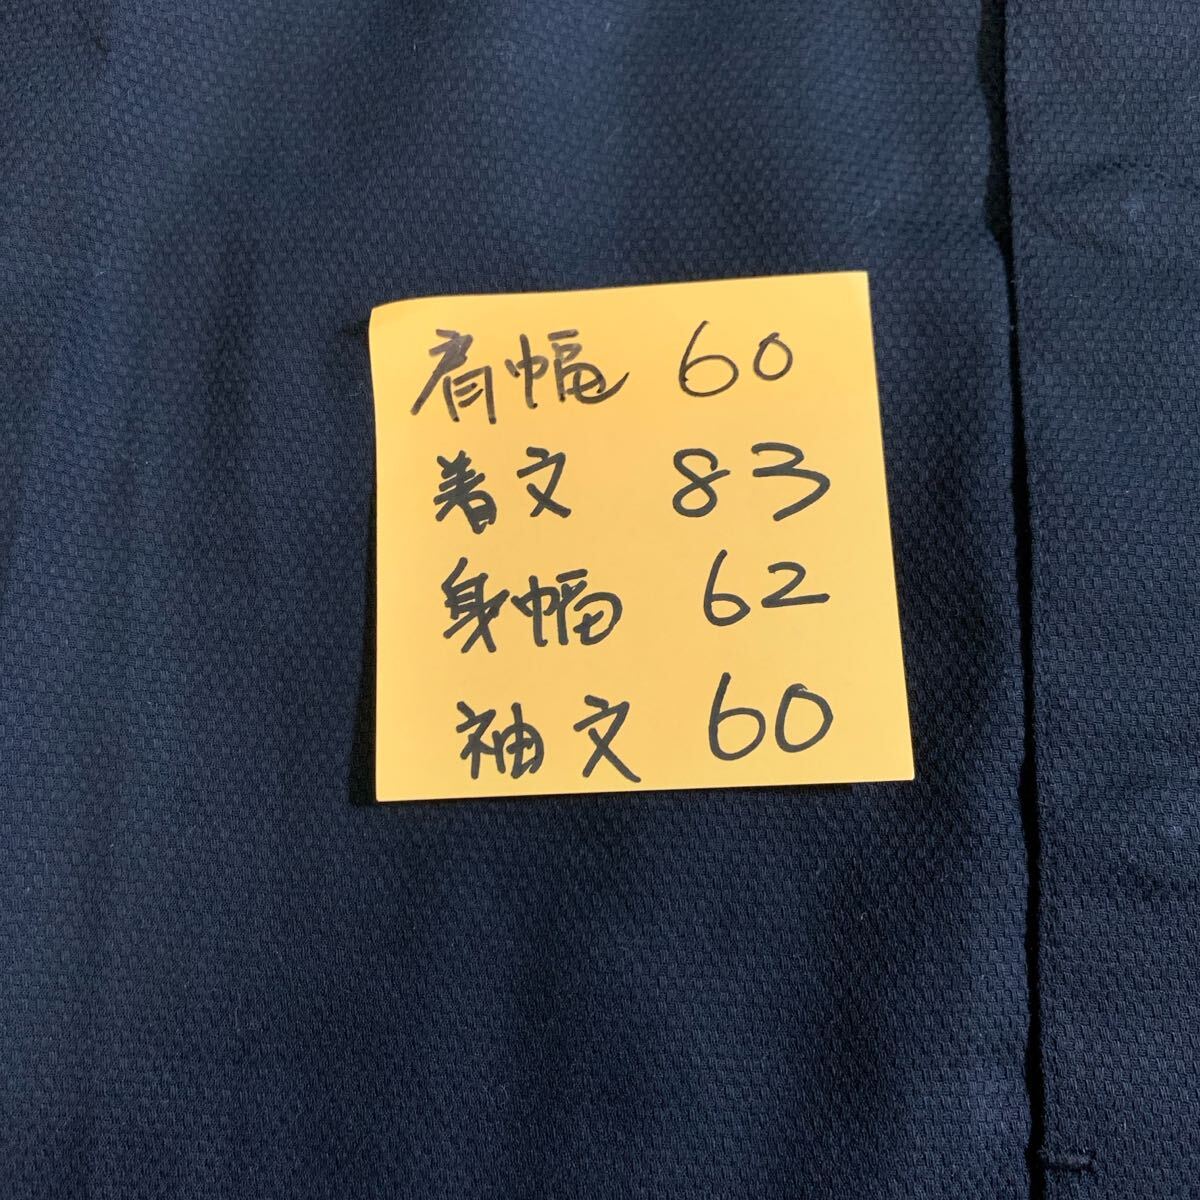 肩幅 60
着文 83
身幅 62
袖文 60